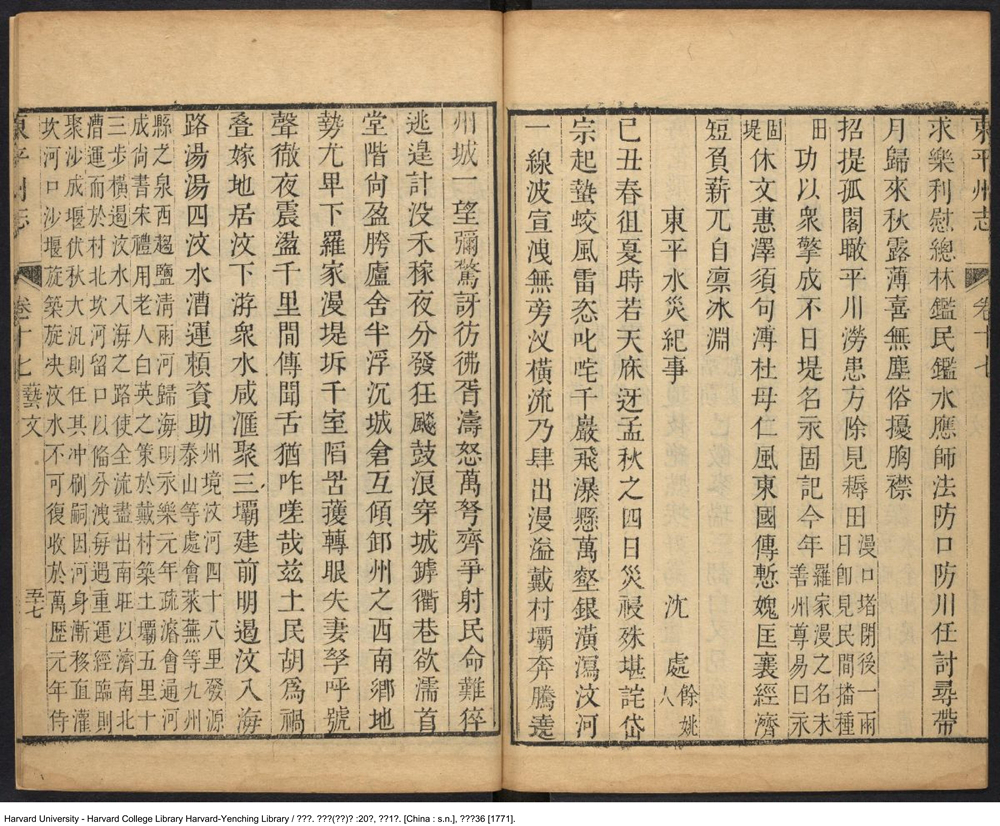 東平州志
卷十七
求樂利慰總林鑑民鑑水應師法防口防川任討尋帶
月歸來秋露薄喜無塵俗擾胸襟
招提孤閣瞰平川澇患方除見耨田漫口堵閉後一兩
日卽見民間播種
田功以衆擎成不日堤名永固記今年羅家漫之名未
善州尊易曰永
固
堤休文惠澤須句溥杜母仁風東國傳慙媿匡襄經濟
短負薪兀自凛冰淵
東平水災紀事 沈處餘姚
人
己丑春徂夏時若天庥迓孟秋之四日災祲殊堪詫岱
宗起蟄蛟風雷恣叱咤千巖飛瀑懸萬壑銀潢瀉汶河
一線波宣洩無旁汊橫流乃肆出漫溢戴村壩奔騰遶
州城一望彌驚訝彷彿胥濤怒萬弩齊爭射民命難猝
逃遑計没禾稼夜分發狂飈鼓浪穿城罅衢巷欲濡首
堂階尙盈胯廬舍半浮沉城倉互傾卸州之西南鄉地
勢尢𤰞下羅家漫堤坼千室䧟罟擭轉眼失妻孥呼號
聲徹夜震盪千里間傳聞舌猶咋嗟哉玆土民胡爲禍
叠嫁地居汶下游衆水咸滙聚三壩建前明遏汶入海
路湯湯四汶水漕運賴資助州境汶河四十八里發源
泰山等處會萊蕪等九州
縣之泉西趨鹽淸兩河歸海明永樂元年疏濬會通河
成尙書宋禮用老人白英之策於戴村築土壩五里十
三步橫遏汶水入海之路使全流盡出南旺以濟南北
漕運而於村北坎河留口以備分洩每遇重運經臨則
聚沙成堰伏秋大汎則任其冲刷嗣因河身漸移直灌
坎河口沙堰旋築旋央汶水不可復收於萬歷元年侍
東平州志
卷十七 藝文 五十七
Harvard University - Harvard College Library Harvard-Yenching Library / ???. ???(??)? :20?, ??1?. [China : s.n.], ???36 [1771].